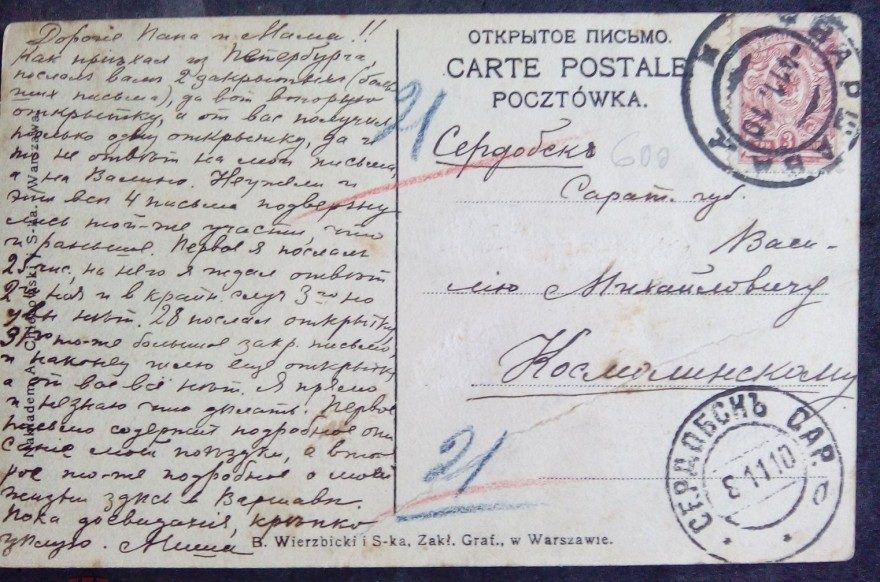 Дорогіе Папа и Мама!!
Какъ пріѣхал из Петербурга,
послал вамъ 2 закрытыхъ (боль-
шихъ письма), да вот вторую
открытку, а от вас получил
только одну открытку, да и
то не отвѣт на мои письма,
а на Валино. Неужели и
эти всѣ 4 письма подвергну-
лись той-же участи что
и раньше. Первое я послалъ
25 чис, на него я ждал отвѣт
2 дня и в крайн. случ 3го но
увы нѣт. 28 послал открытку,
31го то-же большое закр. письмо,
и наконец шлю еще открытку,
а от вас всё нѣт. Я прямо
и незнаю что дѣлать. Первое
письмо содержит подробное опи-
саніе моей поѣздки, а вто-
рое то-же подробное о моей
жизни здѣсь в Варшавѣ.
Пока досвиданія, крѣпко
цѣлую. Миша
Nakładem A. Chlebowski i S-ka. Warszawa.
ОТКРЫТОЕ ПИСЬМО.
CARTE POSTALE.
POCZTÓWKA.
ВАРШАВА
-4 11. 10
3
21
Сердобскъ
600
Сарат. губ.
Васи-
лію Михайловичу
Космолинскому
СЕРДОБСКЪ САР.
8 11 10
21
B. Wierzbicki i S-ka, Zakł. Graf., w Warszawie.